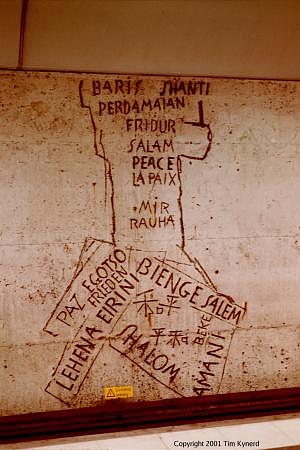 BARIS SHANTI
PERDAMAIAN
FRIDUR
SALAM
PEACE
LA PAIX
MIR
RAUHA
PAZ EGOTTO
FRIEDEN
LEHENA EIRINI
BIENGE SALEM
和平
平和
BEKE
SHALOM
AMANI
Copyright 2001 Tim Kynerd